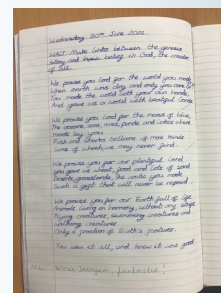 Wednesday 30th June 2021
WALT: Make links between the genesis
story and belief in God, the creator
of all.
We praise you Lord for the world you made
When earth was dry and only you are
You made the world with your own hands
And gave us a world with beautiful lands
We praise you Lord for the mass of blue,
The oceans, seas, rivers, ponds and lakes where
made by you.
Fish and sharks billions of more kinds
Some of which we may never find.
We praise you for our plentiful land
you gave us wheat, food and lots of sand
Deserts, grasslands, the works you made
Such a gift that will never be repaid.
We praise you for our Earth full of life
Animals living in harmony, without any strife
Flying creatures, swimming creatures and
walking creatures
Only a fraction of Earth's features.
You saw it all, and knew it was good.
fantastic!